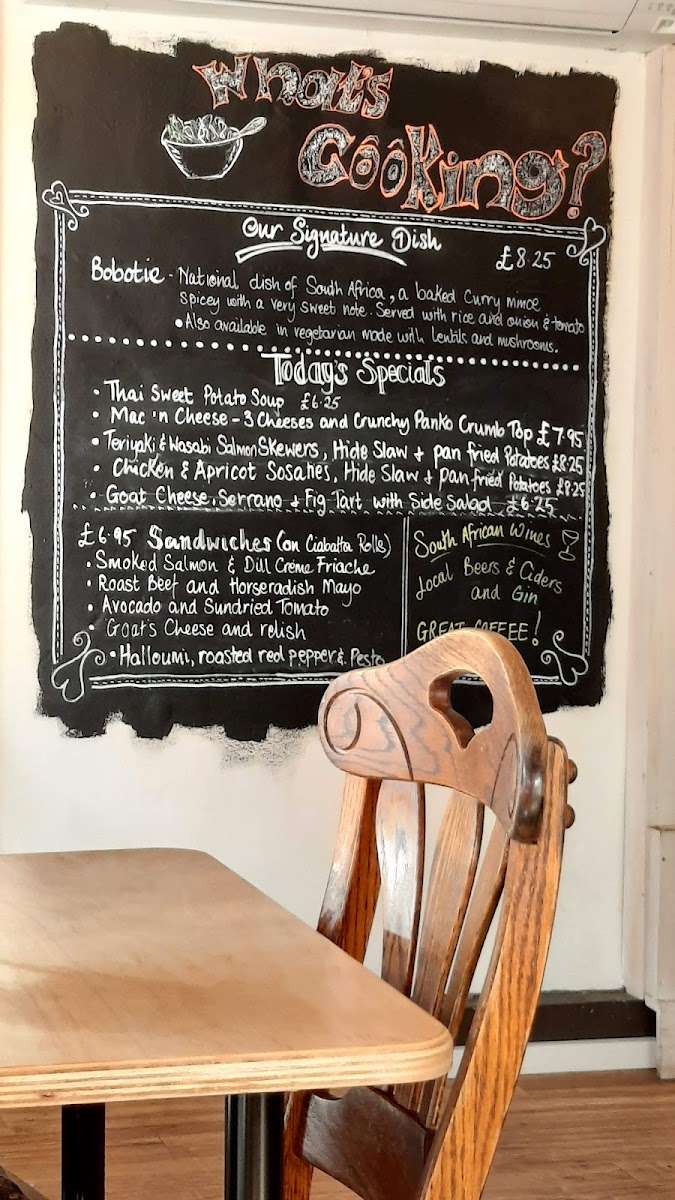 What's
Cooking?
Our Signature Dish
£8.25
Bobotie - National dish of South Africa, a baked curry mince
spicey with a very sweet note. Served with rice and onion & tomato
• Also available in vegetarian made with lentils and mushrooms.
Today's Specials
• Thai Sweet Potato Soup £6.25
• Mac 'n Cheese - 3 Cheeses and Crunchy Panko Crumb Top £7.95
• Teriyaki & Wasabi Salmon Skewers, Hide Slaw + pan fried Potatoes £8.25
• Chicken & Apricot Sosaties, Hide Slaw + pan fried Potatoes £8.25
• Goat Cheese, Serrano + Fig Tart with Side Salad £6.25
£6.95 Sandwiches (on Ciabatta Rolls)
• Smoked Salmon & Dill Créme Friache
• Roast Beef and Horseradish Mayo
• Avocado and Sundried Tomato
• Goat's Cheese and relish
• Halloumi, roasted red pepper & Pesto
South African Wines
Local Beers & Ciders
and Gin
GREAT COFFEE!